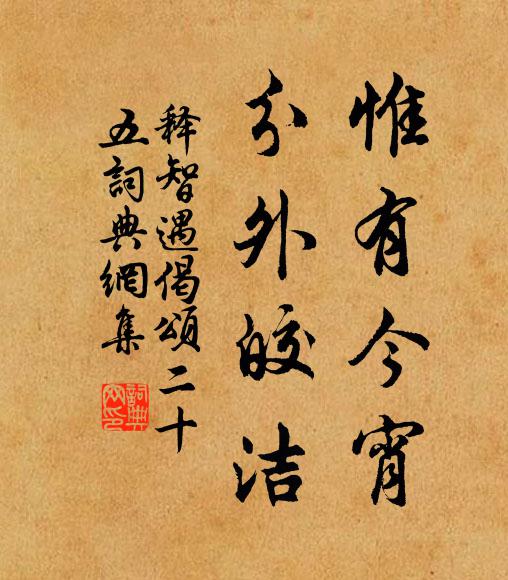 惟有今宵
分外皎洁
释智遇偈頌二十
五詞典網集
詞典網印